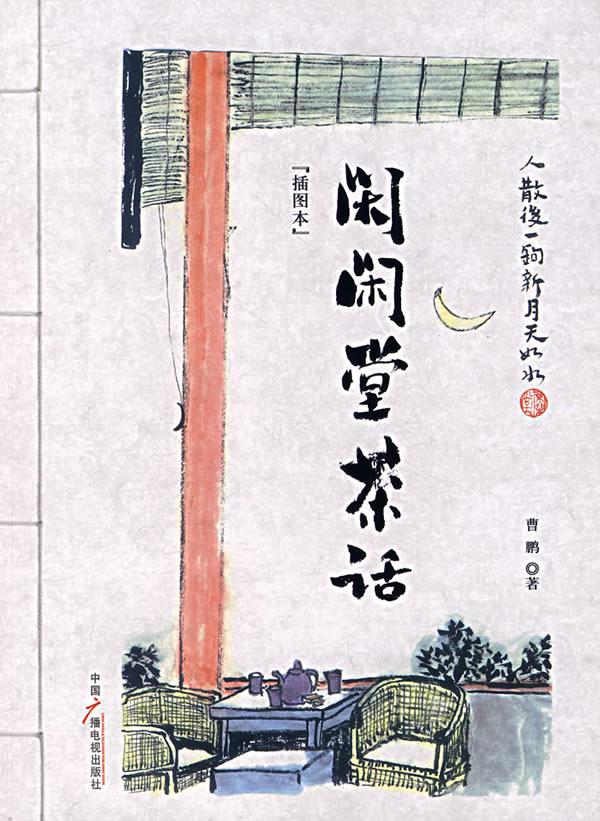 人散後一鉤新月天如水
閑閑堂茶话
『插图本』
曹鹏◎著
中国广播电视出版社